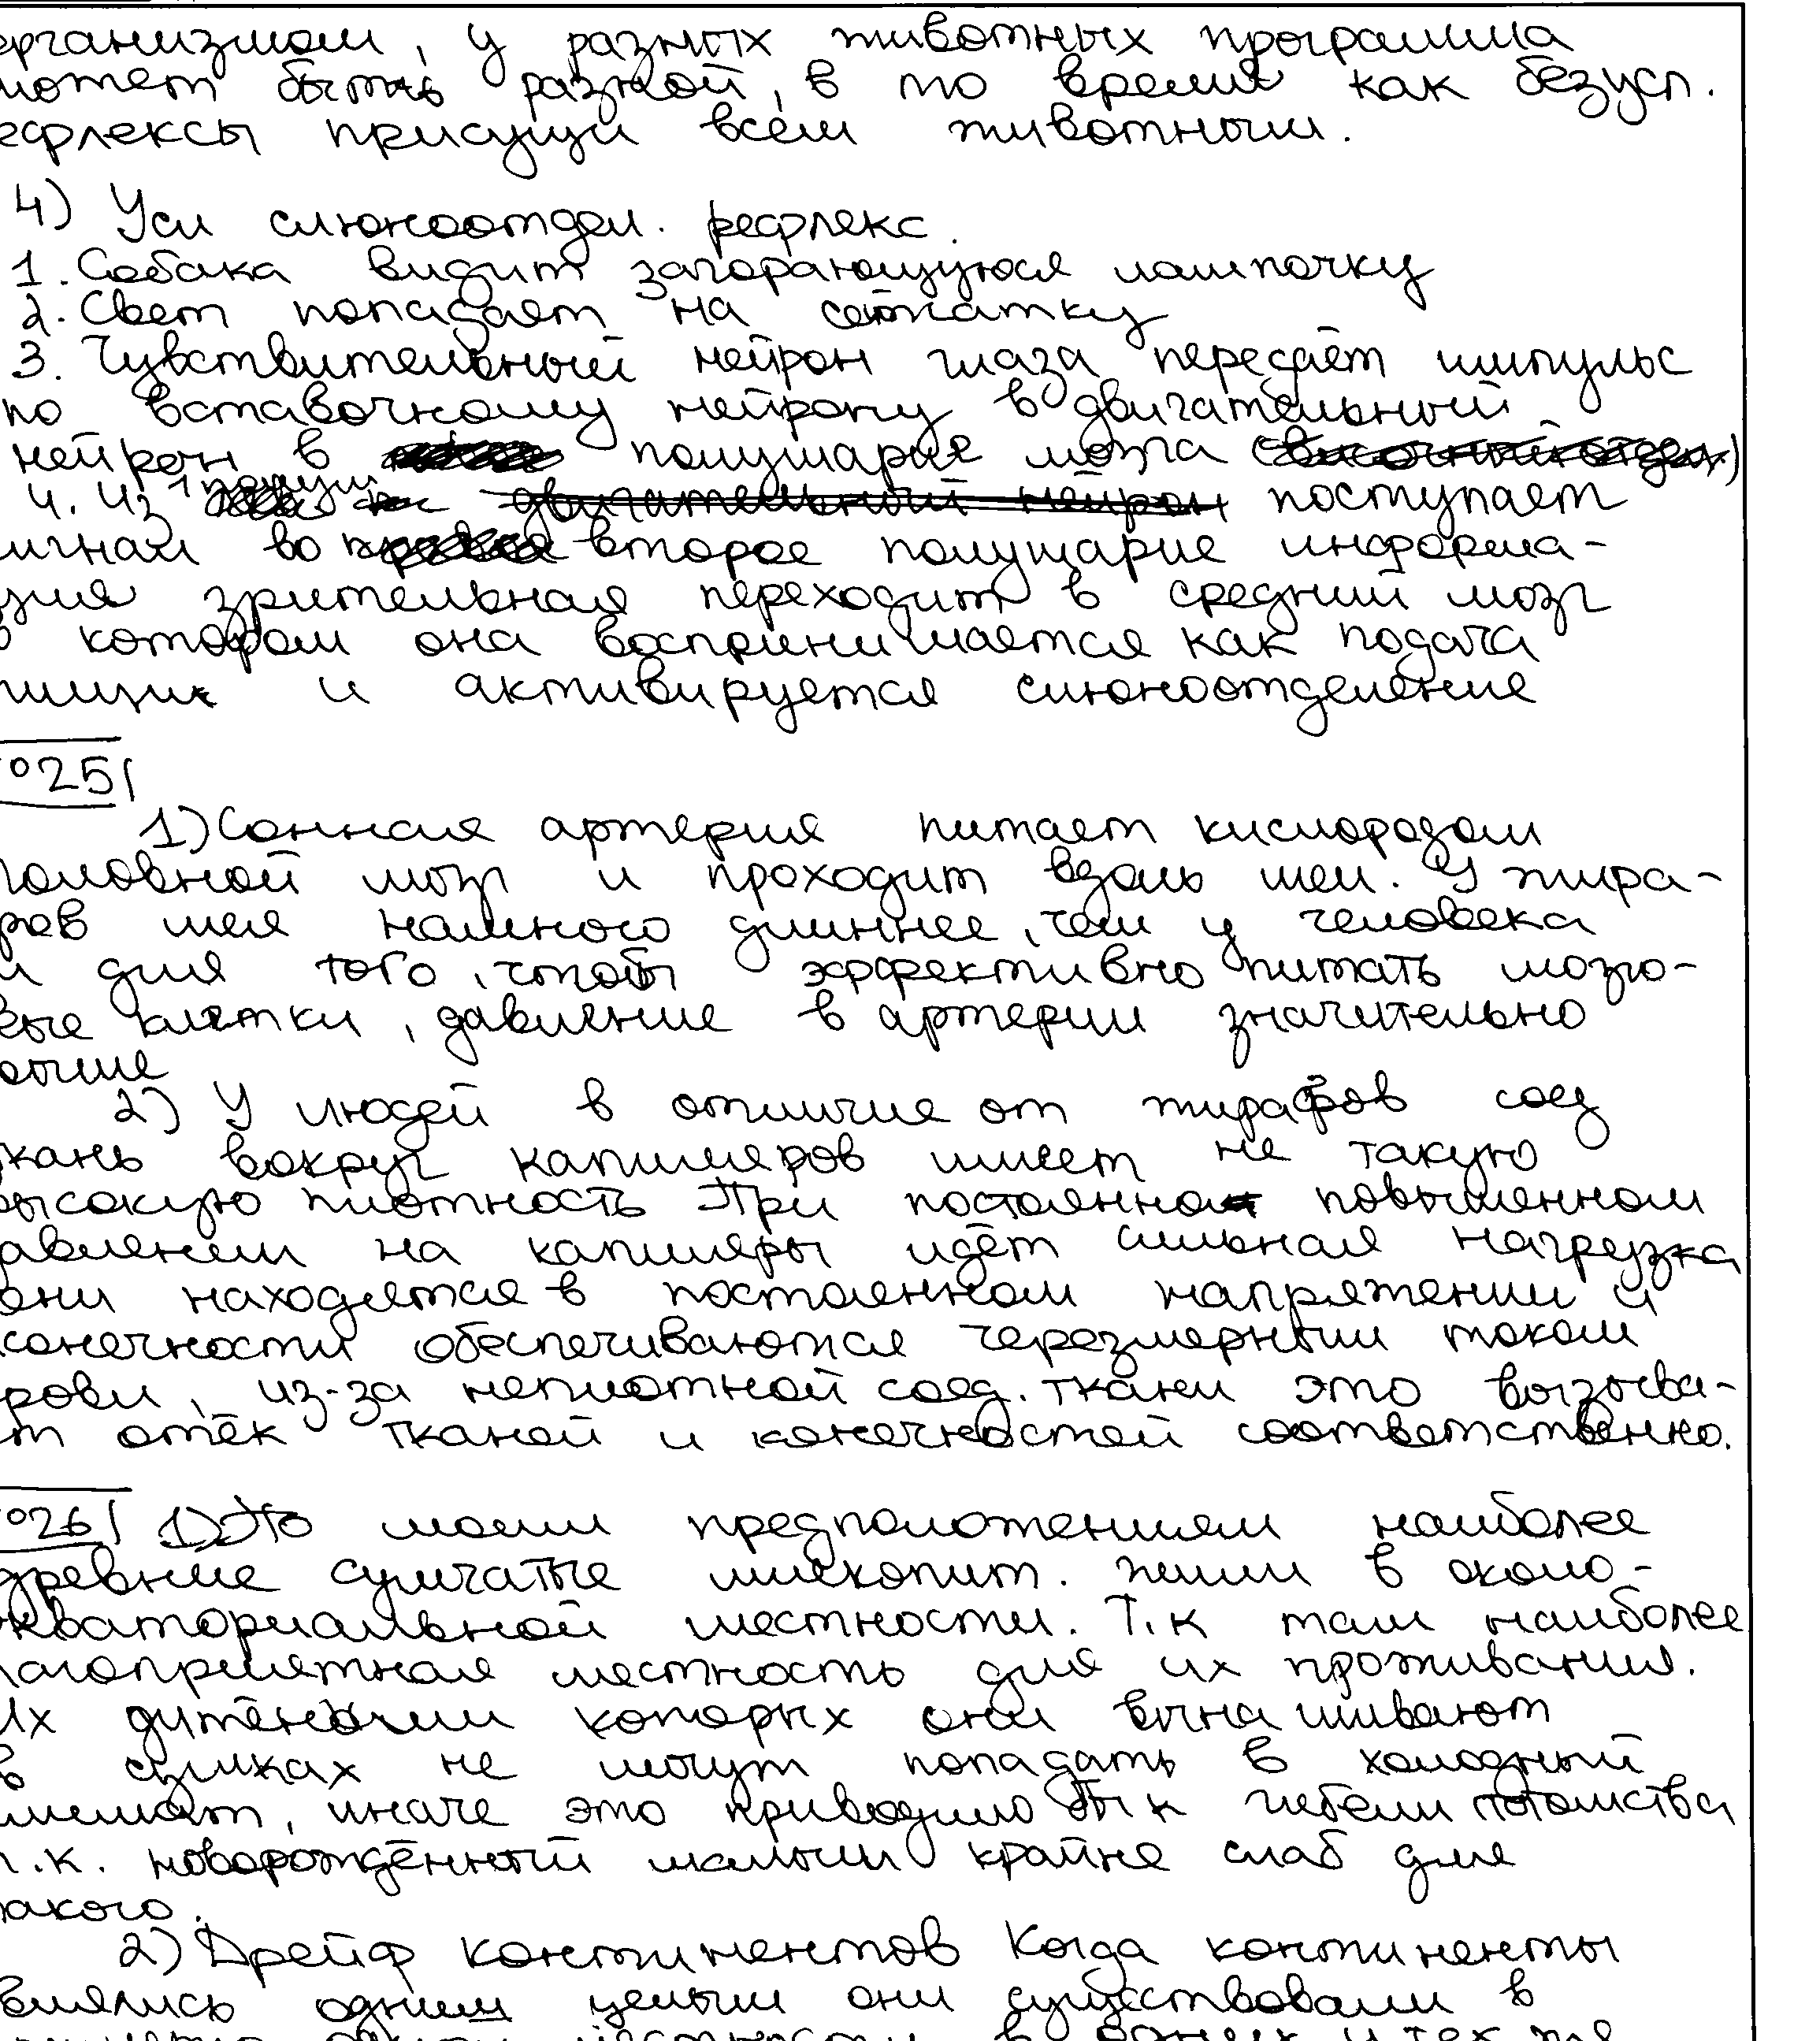 организмом, у разных животных программа
может быть разной, в то время как безусл.
ефлексы присущи всем животным.
4) Усл слюноотдел. рефлекс.
1. Собака видит загорающуюся лампочку
2. Свет попадает на сетчатку
3. Чувствительный нейрон глаза передаёт импульс
по вставочному нейрону в двигательный
нейрон в полушарие мозга
4. Из 1 полуш поступает
игнал во второе полушарие информа-
ция зрительная переходит в средний мозг
котором она воспринимается как подача
пищи и активируется слюноотделение
°25
1) Сонная артерия питает кислородом
головной мозг и проходит вдоль шеи. У жира-
фов шея намного длиннее, чем у человека
и для того, чтобы эффективно питать мозго-
вые клетки, давление в артерии значительно
выше
2) У людей в отличие от жирафов соед
кань вокруг капилляров имеет не такую
высокую плотность При постоянно повышенном
авлении на капилляры идёт сильная нагрузка
они находятся в постоянном напряжении и
конечности обеспечиваются черезмерным током
рови, из-за неплотной соед. ткани это вызыва-
ет отёк тканей и конечностей соответственно.
°26 1) По моим предположениям наиболее
древние сумчатые млекопит. жили в около-
экваториальной местности. Т.к там наиболее
лагоприятная местность для их проживания.
Их дитёныши которых они вынашивают
в сумках не могут попадать в холодный
климат, иначе это приводило бы к гибели потомства
т.к. новорождённый малыш крайне слаб для
такого.
2) Дрейф континентов Когда континенты
являлись одним целым они существовали в